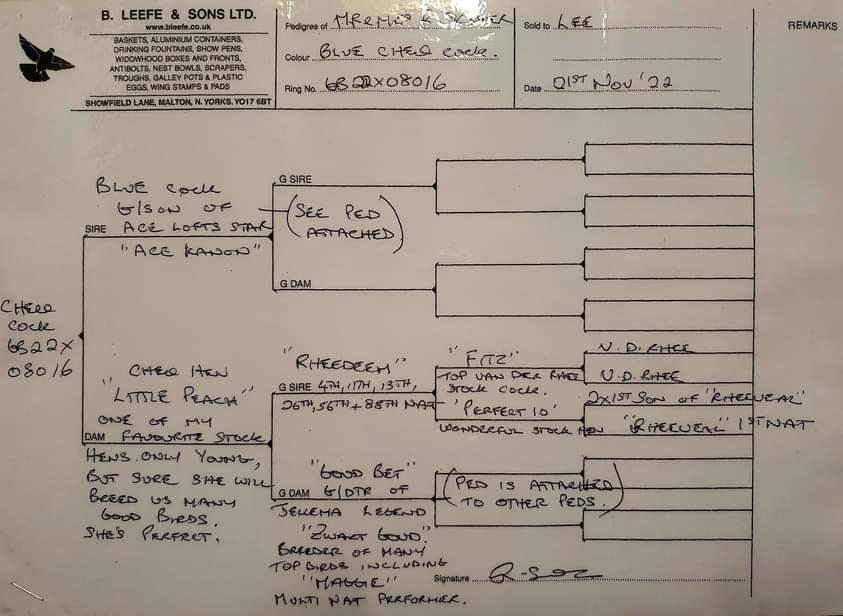 B. LEEFE & SONS LTD.
www.bleefe.co.uk
BASKETS, ALUMINIUM CONTAINERS,
DRINKING FOUNTAINS, SHOW PENS,
WIDOWHOOD BOXES AND FRONTS,
ANTIBOLTS, NEST BOWLS, SCRAPERS,
TROUGHS, GALLEY POTS & PLASTIC
EGGS, WING STAMPS & PADS
SHOWFIELD LANE, MALTON, N. YORKS. YO17 6BT
Pedigree of MR & MRS R.
Colour BLUE CHEQ COCK.
Ring No. GB22X08016
Sold to LEE
Date 21ST NOV '22
REMARKS
CHEQ
COCK
GB22X
08016
BLUE COCK
G/SON OF
SIRE ACE LOFTS STAR
"ACE KANON"
G SIRE
(SEE PED
ATTACHED)
G DAM
CHEQ HEN
"LITTLE PEACH"
ONE OF MY
DAM FAVOURITE STOCK
HENS. ONLY YOUNG,
BUT SURE SHE WILL
BREED US MANY
GOOD BIRDS.
SHE'S PERFECT.
"RHEEDEEM"
G SIRE 4TH, 11TH, 13TH,
26TH, 56TH + 88TH NAT
"FITZ"
TOP VAN DER RHEE
STOCK COCK.
'PERFECT 10'
WONDERFUL STOCK HEN
V.D. RHEE
V.D. RHEE
2X1ST SON OF "RHEEVEAL"
"RHEEVEAL" 1ST NAT
"GOOD BET"
G DAM G/DTR OF
JELLEMA LEGEND
"ZWART GOUD."
BREEDER OF MANY
TOP BIRDS INCLUDING
"MAGGIE"
MULTI NAT PERFORMER.
(PED IS ATTACHED
TO OTHER PEDS.)
Signature